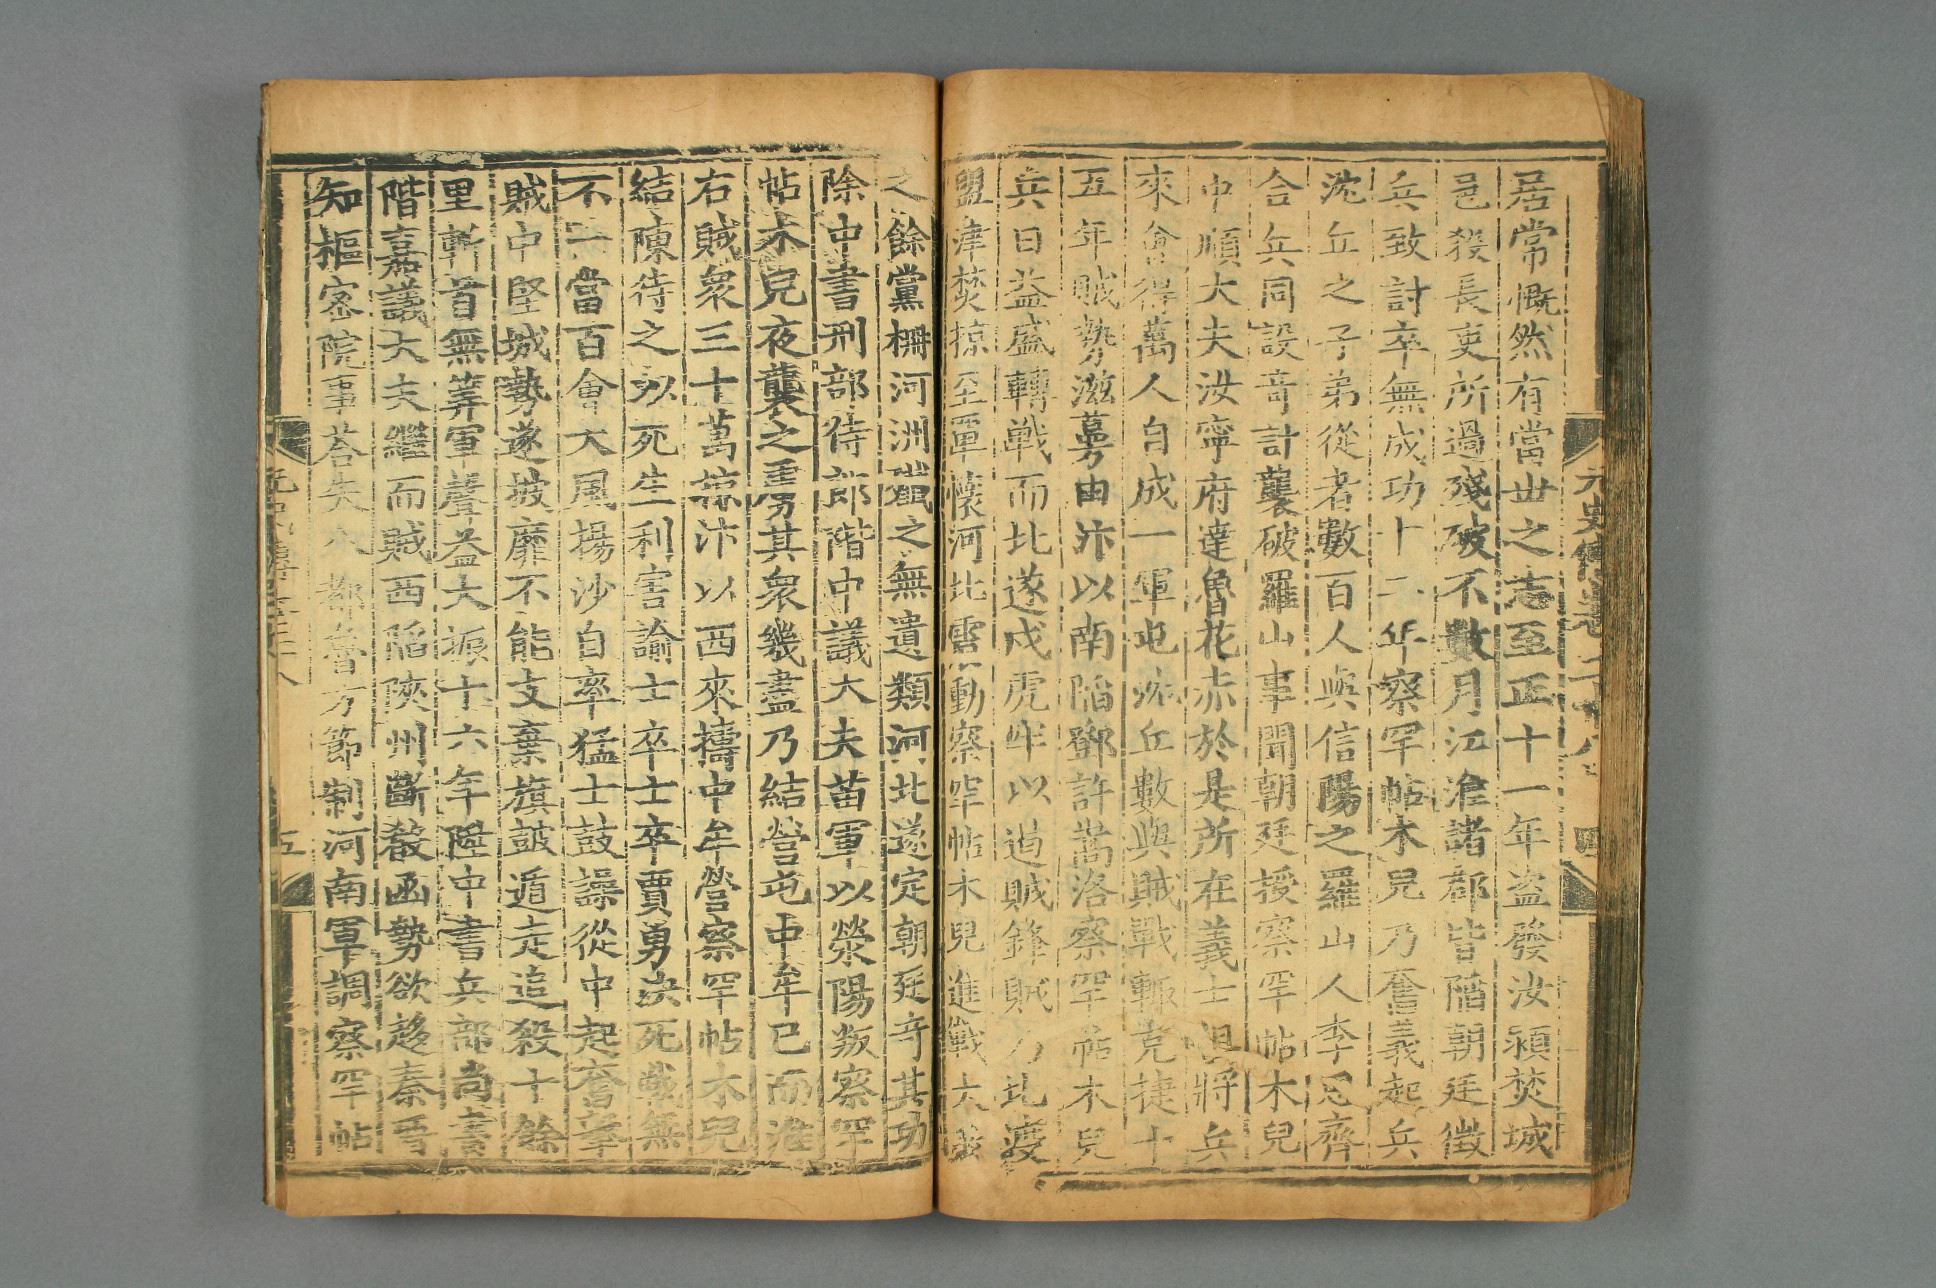 元史傳卷二十八
四
居常慨然有當世之志至正十一年盗發汝潁焚城
邑殺長吏所過殘破不數月江淮諸郡皆陷朝廷徵
兵致討卒無成功十二年察罕帖木兒乃奮義起兵
沈丘之子弟從者數百人與信陽之羅山人李思齊
合兵同設竒計襲破羅山事聞朝廷授察罕帖木兒
中順大夫汝寧府達魯花赤於是所在義士俱將兵
來會得萬人自成一軍屯沈丘數與賊戰輒克捷十
五年賊勢滋蔓由汴以南陷鄧許嵩洛察罕帖木兒
兵日益盛轉戰而北遂戍虎牢以遏賊鋒賊乃北渡
盟津焚掠至覃懷河北震動察罕帖木兒進戰大敗
之餘黨柵河洲殲之無遺類河北遂定朝廷竒其功
除中書刑部侍郎階中議大夫苗軍以滎陽叛察罕
帖木兒夜襲之虜其衆幾盡乃結營屯中牟已而淮
右賊衆三十萬掠汴以西來擣中牟營察罕帖木兒
結陳待之以死生利害諭士卒士卒賈勇决死戰無
不一當百會大風揚沙自率猛士鼓譟從中起奮擊
賊中堅城勢遂披靡不能支棄旗鼓遁走追殺十餘
里斬首無筭軍聲益大振十六年陞中書兵部尚書
階嘉議大夫繼而賊西陷陜州斷殽函勢欲趍秦晋
知樞密院事荅失八都魯方節制河南軍調察罕帖
五